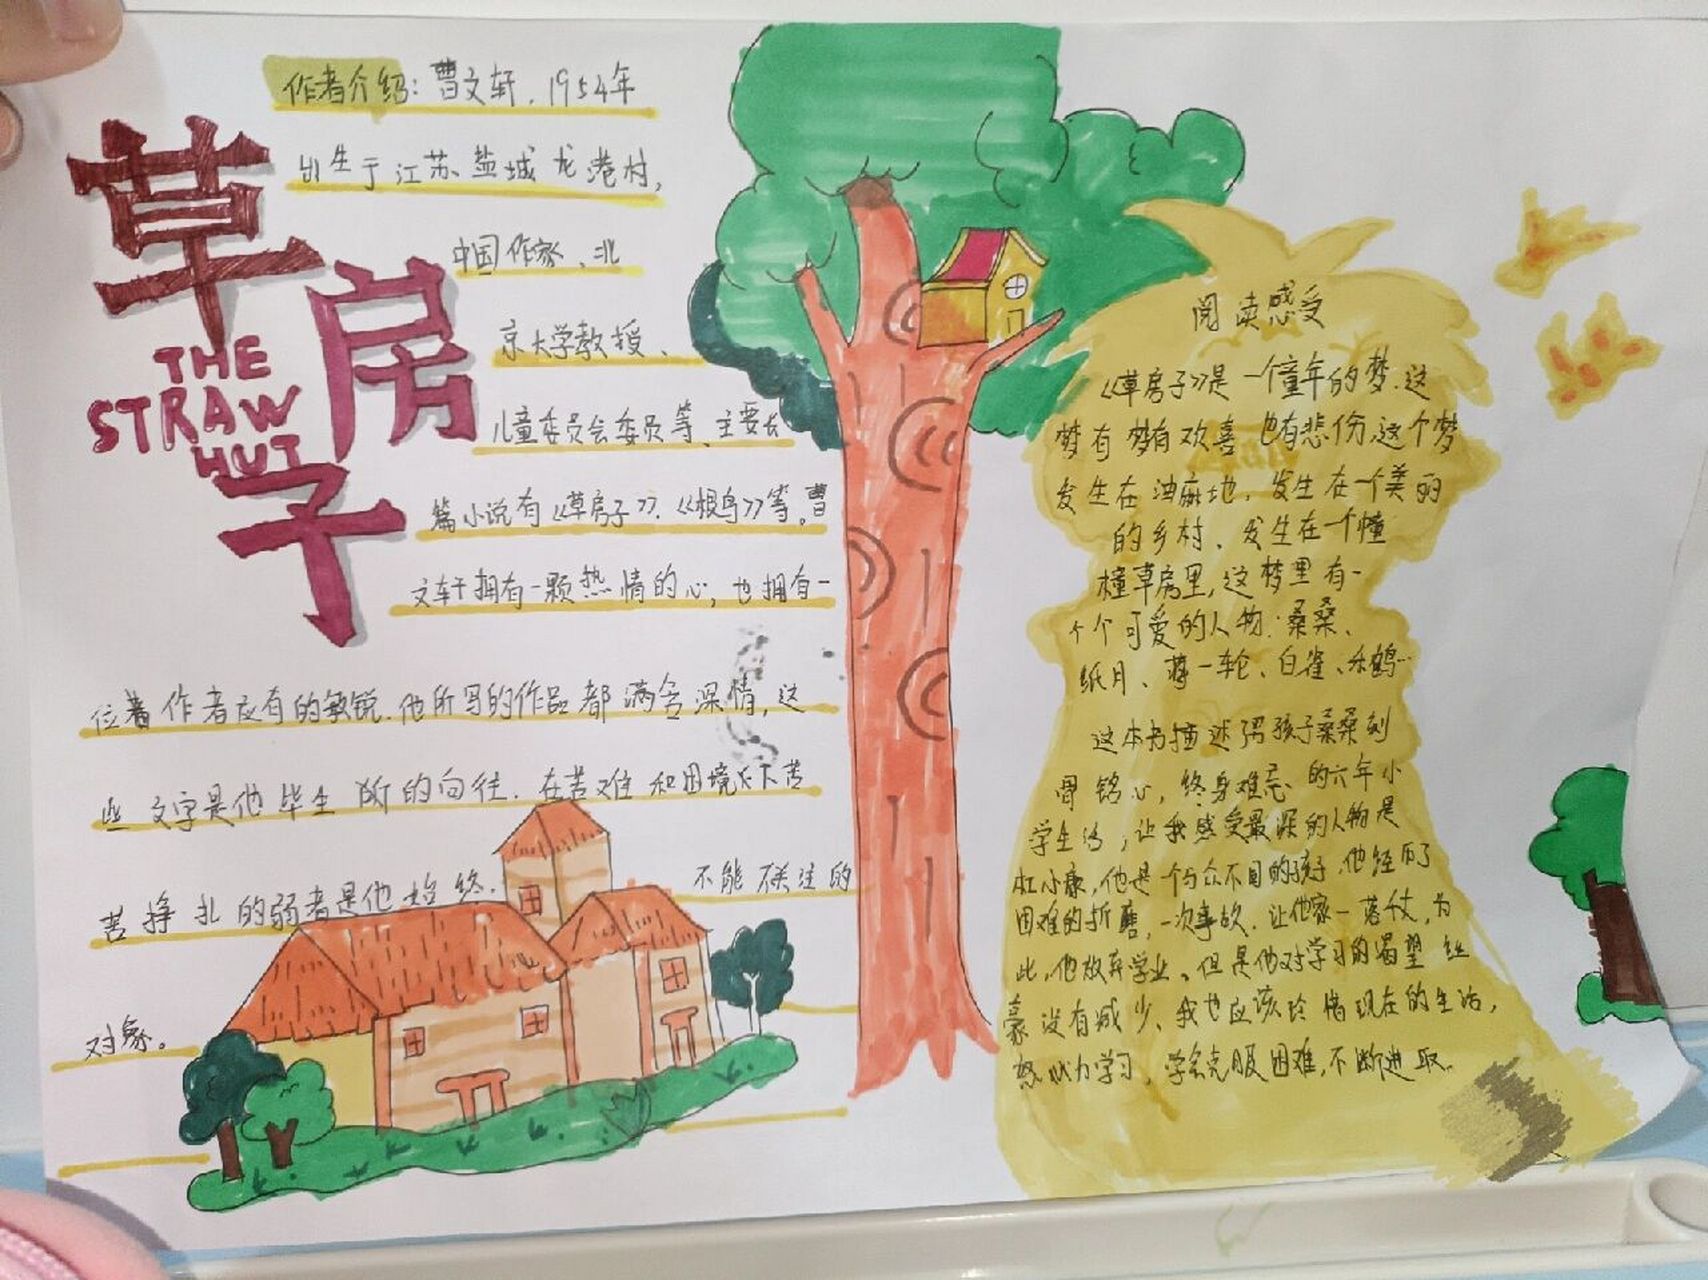 草房子
THE
STRAW
HUT
作者介绍：曹文轩，1954年
出生于江苏盐城龙港村，
中国作家、北
京大学教授、
儿童委员会委员等、主要长
篇小说有《草房子》、《根鸟》等。曹
文轩拥有一颗热情的心，也拥有一
位着作者应有的敏锐.他所写的作品都满含深情，这
些文字是他毕生所的向往.在苦难和困境下苦
苦挣扎的弱者是他始终.不能不关注的
对象。
阅读感受
《草房子》是一个童年的梦.这
梦有梦有欢喜也有悲伤，这个梦
发生在油麻地，发生在一个美丽
的乡村、发生在一个幢
橦草房里，这梦里有一
个个可爱的人物：桑桑、
纸月、蒋一轮、白雀、禾鹤…
这本书描述男孩子桑桑刻
骨铭心，终身难忘的六年小
学生活，让我感受最深的人物是
杜小康，他是一个与众不同的孩子.他经历了
困难的折磨，一次事故.让他家一落千丈，为
此，他放弃学业、但是他对学习的渴望丝
豪没有减少、我也应该珍惜现在的生活，
努力学习，学会克服困难，不断进取.